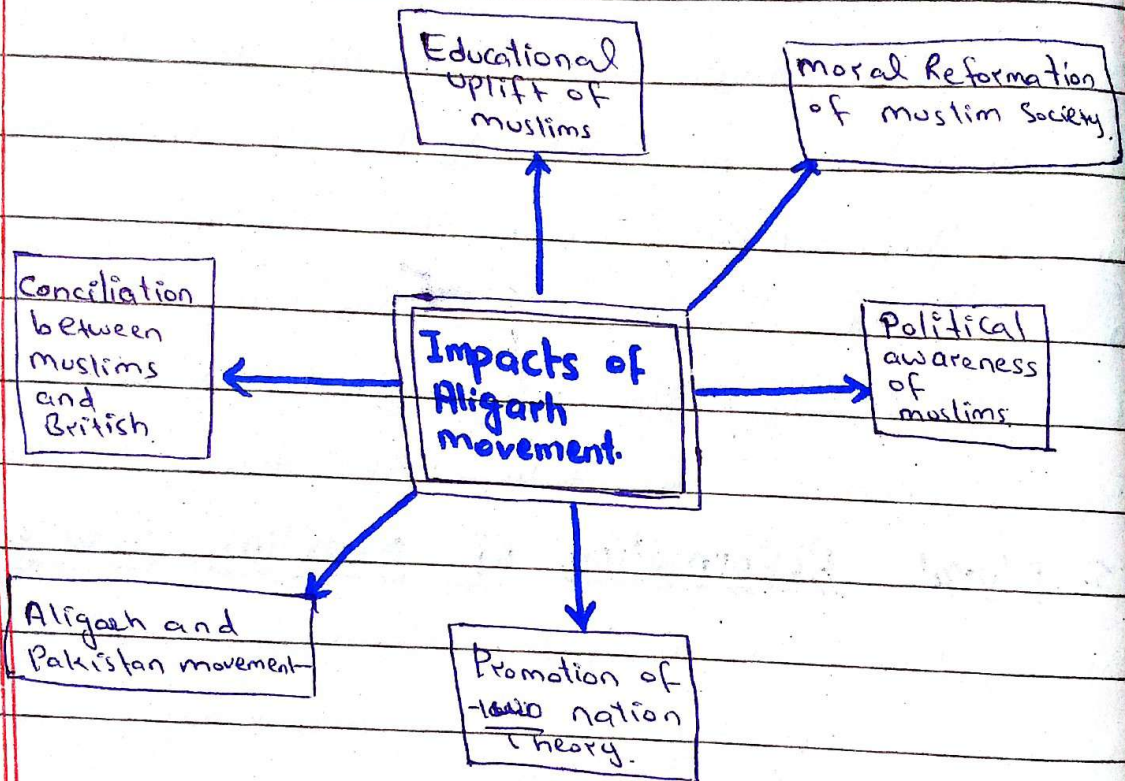 Educational
uplift of
muslims
Moral Reformation
of muslim Society.
Conciliation
between
muslims
and
British.
Impacts of
Aligarh
movement.
Political
awareness
of
muslims.
Aligarh and
Pakistan movement
Promotion of
nation
Theory.